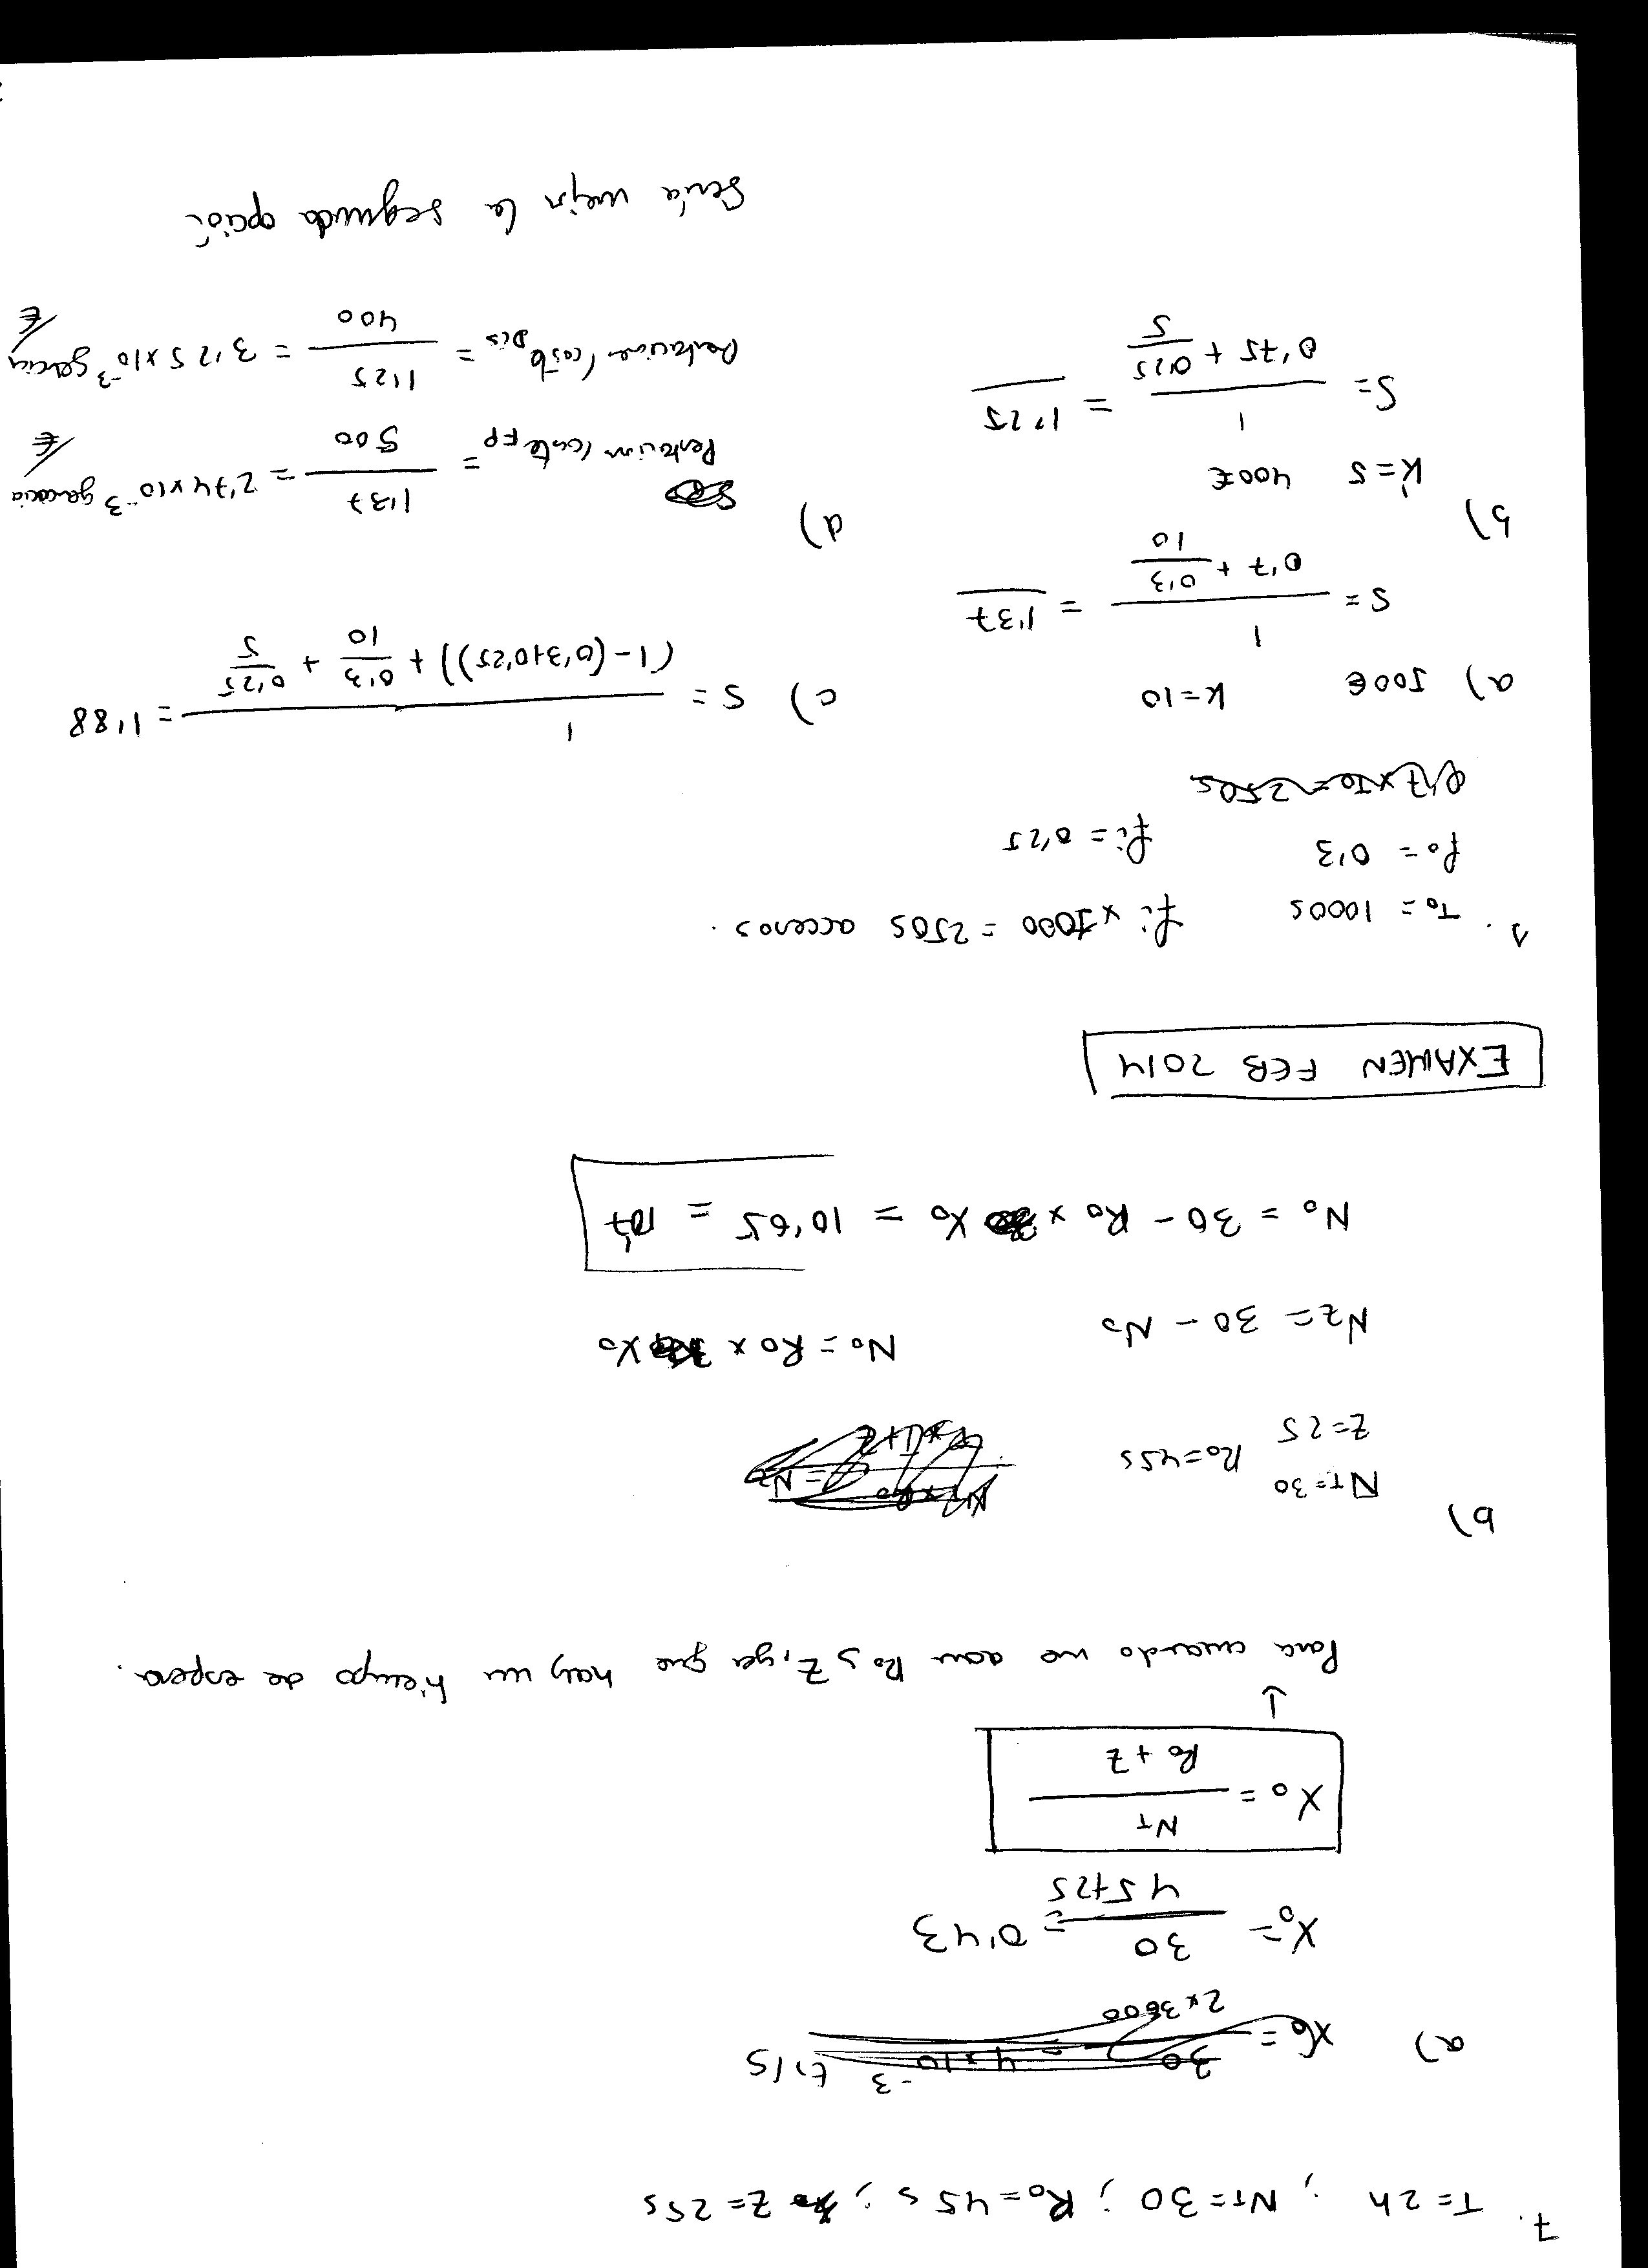 7.
T = 2h ; NT = 30 ; Ro = 45 s ; Z = 25 s
a) X0 = 30 / 2 x 3600 = 4 x 10^-3 tr/s
Xo = 30 / 45+25 = 0'43
Xo = NT / Ro + Z
↓
Para cuando me dan Ro y Z, ya que hay un tiempo de espera.
b)
NT = 30
Z = 25 Ro = 45s
NZ = 30 - No No = Ro x Xo
No = 30 - Ro x Xo = 10'65 = 10'7
EXAMEN FEB 2014
1.
To = 1000s fi x 1000 = 250s accesos.
fo = 0'3 fi = 0'25
0'7 x To = 250s
a) 500€ K = 10
S = 1 / 0'7 + 0'3/10 = 1'37
b)
K' = 5 400€
S = 1 / 0'75 + 0'25/5 = 1'25
c) S = 1 / (1 - (0'3+0'25)) + 0'3/10 + 0'25/5 = 1'88
d)
Prestacion/coste FP = 1'37 / 500 = 2'74 x 10^-3 ganancia/€
Prestaciones/coste Dis = 1'25 / 400 = 3'125 x 10^-3 /€
Sería mejor la segunda opción